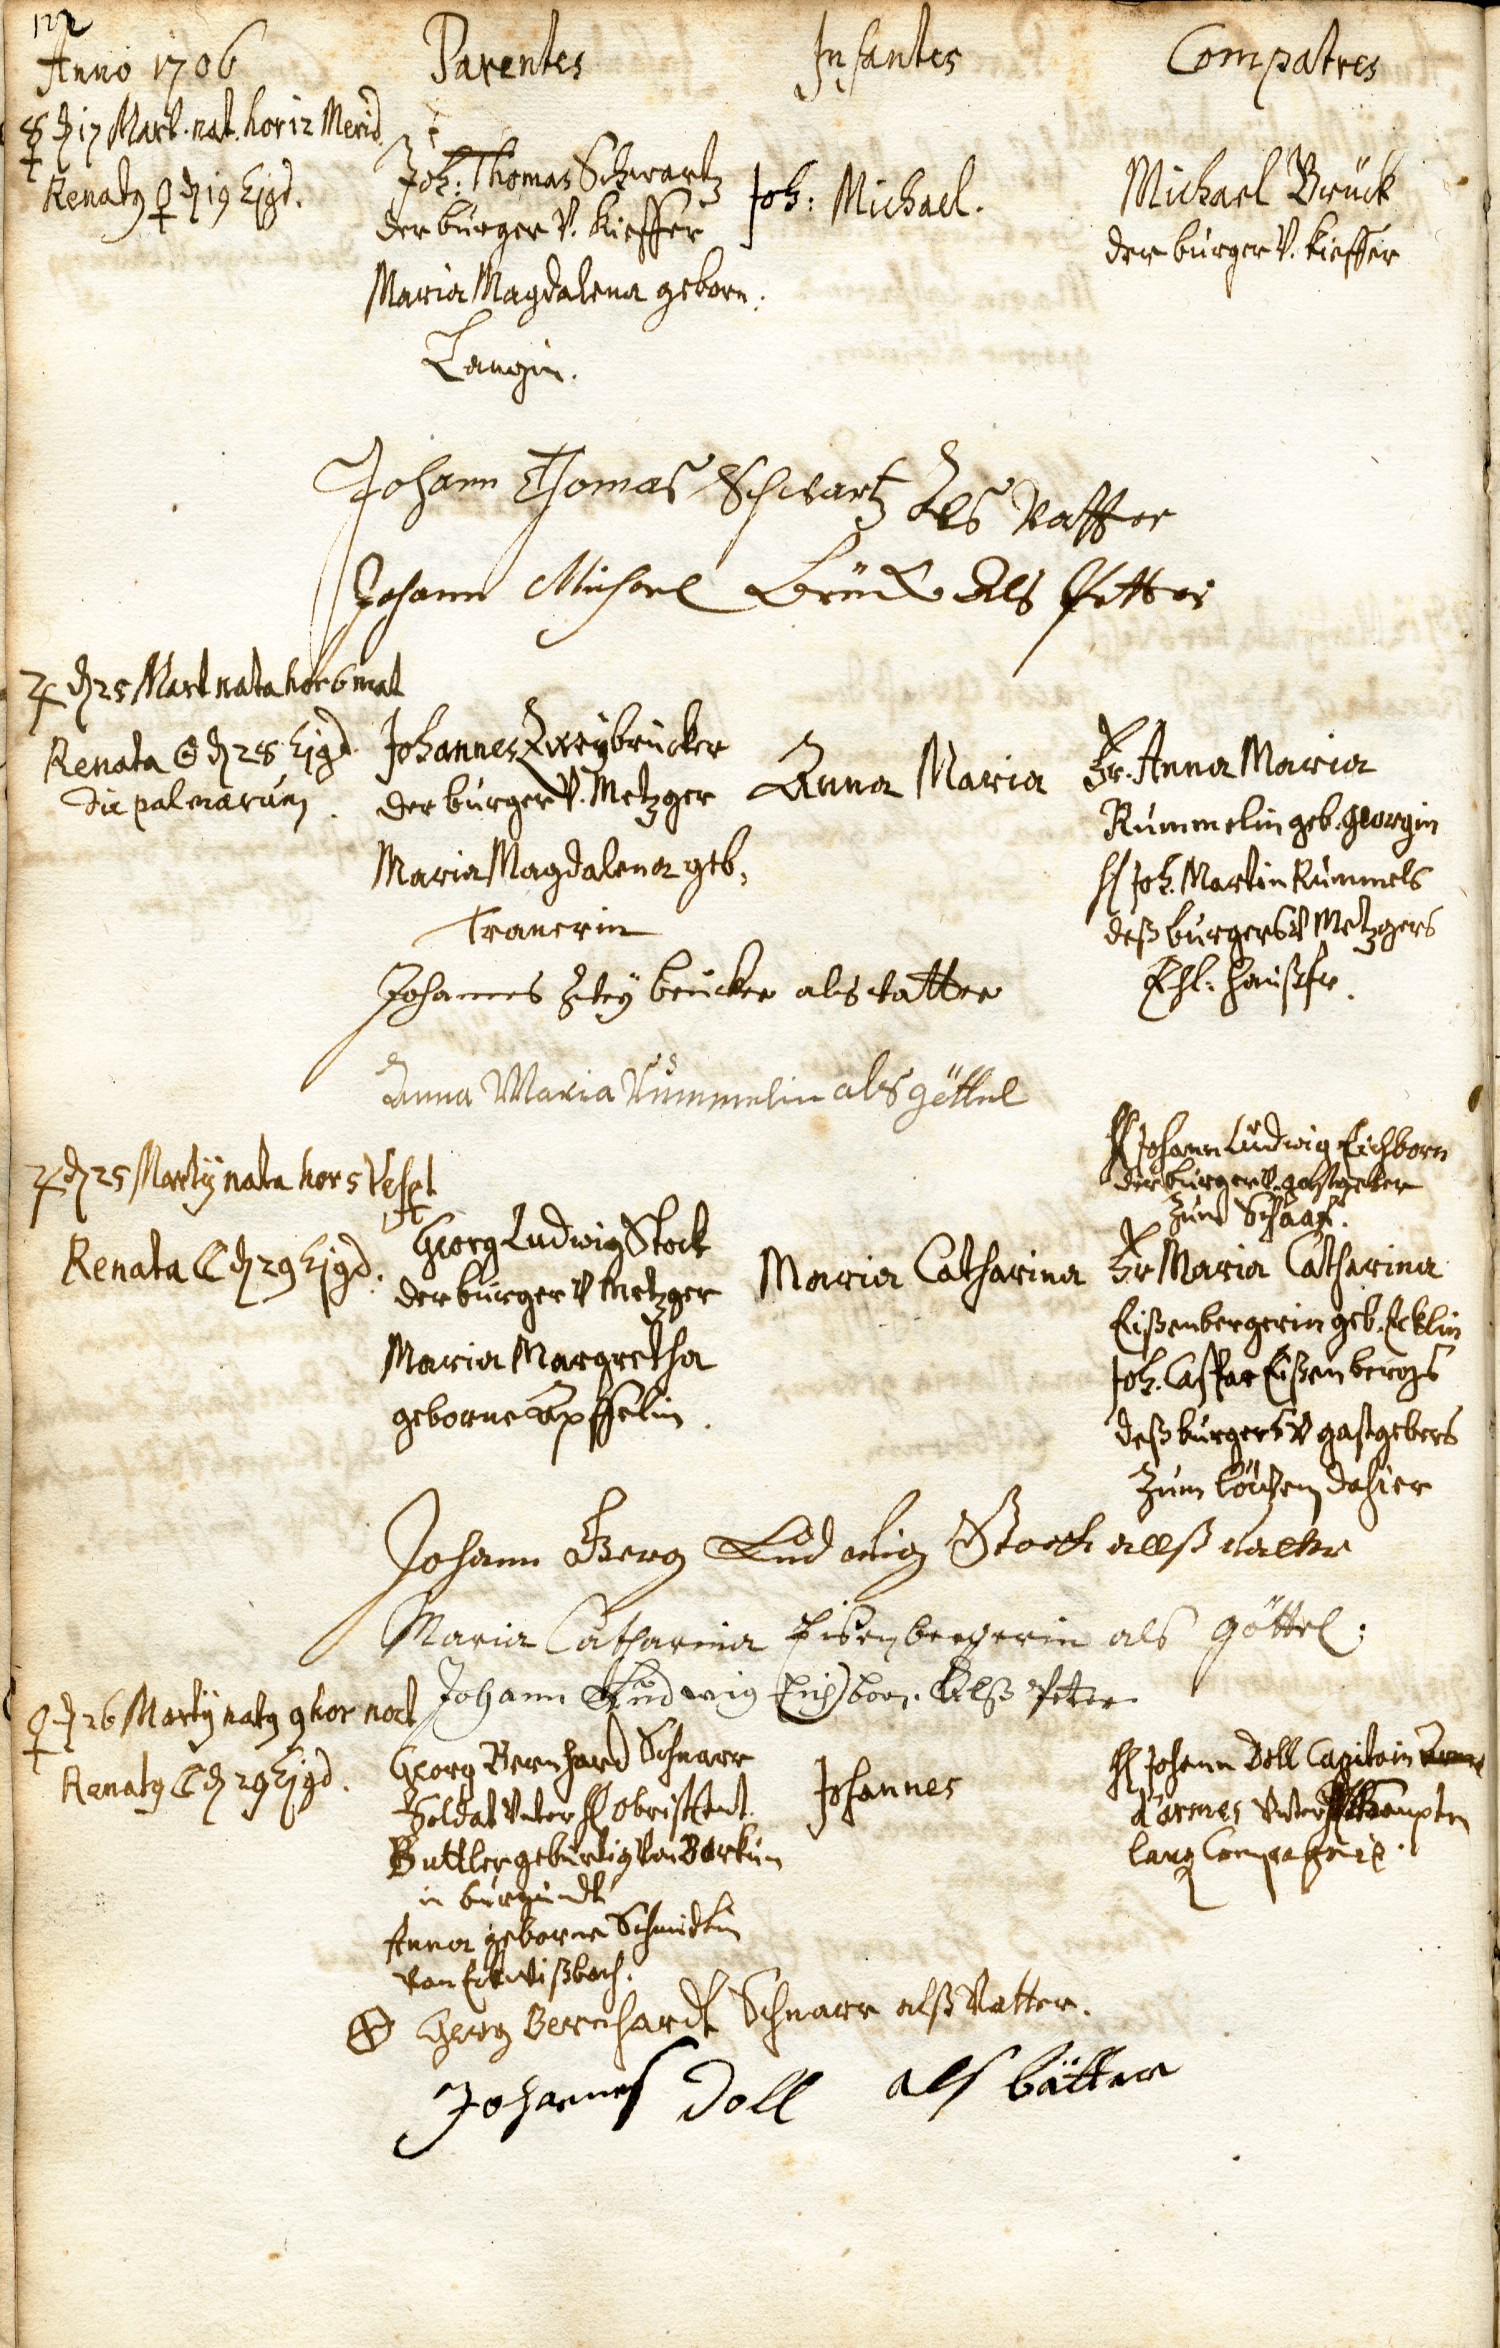 122
Anno 1706
Parentes
Infantes
Compatres
☿ d 17 Mart. nat. hor 12 Merid.
Renatg ♀ d 19 Ejgd.
Joh: Thomas Schwartz
der burger V. Kieffer
Maria Magdalena geborn:
Langin.
Joh: Michael.
Michael Brück
der burger V. Kieffer
Johann Thomas Schwartz Als Vatter
Johann Michael Brück Als Petter
♃ d 25 Mart nata hor 6 mat
Renata ☉ d 28 Ejgd
die palmarum.
Johannes Zweÿbrücker
der burger V. Metzger
Maria Magdalena geb.
Tranerin
Anna Maria
Fr. Anna Maria
Rummelin geb. Georgin
H Joh. Martin Rummels
deß burgers V Metzgers
Ehl: haußfr.
Johannes Zweÿ brücker als vatter
Anna Maria Rummelin als göttel
♃ d 25 Martÿ nata hor 5 Vesp.
Renata ☾ d 29 Ejgd.
Georg Ludwig Stock
der burger V Metzger
Maria Margretha
geborne Äpffelin.
Maria Catharina
H Johann Ludwig Eichborn
der burger V. gastgeber
zum Schaaf.
Fr Maria Catharina
Eißenbergerin geb. Ecklin
Joh. Caspar Eißenbergs
deß burgers V gastgebers
zum Löwen dahier
Johann Gerg Ludwig Stock allß vatter
Maria Catharina Eisenbergerin als Göttel:
Johann Ludwig Eichborn Alß Peter
♀ d 26 Martÿ natg 9 hor noct
Renatg ☾ d 29 Ejgd.
Georg Bernhard Schnarr
Soldat Vnter H Obrist
Buttler gebürtig Von Borkun
in burgundt
Anna geborne Schmidtin
von
Johannes
H Johann Doll Capitain
d'armes Vnter Haupten
lang Compagnie.
Georg Bernhardt Schnarr alß Vatter.
Johannes Doll als bätter